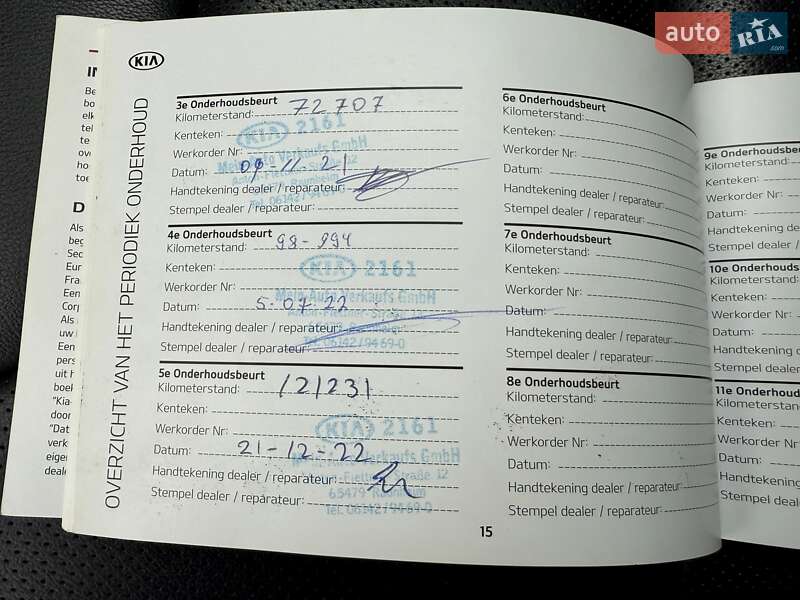 auto RIA.com
KIA
OVERZICHT VAN HET PERIODIEK ONDERHOUD
3e Onderhoudsbeurt
Kilometerstand: 72707
Kenteken:
KIA 2161
Werkorder Nr:
Mein Auto Verkaufs GmbH
Datum: 09-11-21
Handtekening dealer / reparateur:
Tel. 06142/9469-0
Stempel dealer / reparateur:
4e Onderhoudsbeurt
Kilometerstand: 98-994
Kenteken:
KIA 2161
Werkorder Nr:
Mein Auto Verkaufs GmbH
Datum: 5-07-22
Handtekening dealer / reparateur:
Tel. 06142/9469-0
Stempel dealer / reparateur:
5e Onderhoudsbeurt
Kilometerstand: 121231
Kenteken:
KIA 2161
Werkorder Nr:
Mein Auto Verkaufs GmbH
Datum: 21-12-22
Straße 12
Handtekening dealer / reparateur:
65479 Raunheim
Stempel dealer / reparateur:
Tel. 06142/9469-0
15
6e Onderhoudsbeurt
Kilometerstand:
Kenteken:
Werkorder Nr:
Datum:
Handtekening dealer / reparateur:
Stempel dealer / reparateur:
7e Onderhoudsbeurt
Kilometerstand:
Kenteken:
Werkorder Nr:
Datum:
Handtekening dealer / reparateur:
Stempel dealer / reparateur:
8e Onderhoudsbeurt
Kilometerstand:
Kenteken:
Werkorder Nr:
Datum:
Handtekening dealer / reparateur:
Stempel dealer / reparateur:
9e Onderhoudsbeurt
Kilometerstand:
Kenteken:
Werkorder Nr:
Datum:
Handtekening
Stempel dealer /
10e Onderhouds
Kilometerstand:
Kenteken:
Werkorder Nr:
Datum:
Handtekening
Stempel dealer /
11e Onderhouds
Kilometerstand:
Kenteken:
Werkorder Nr:
Datum:
Handtekening
Stempel dealer